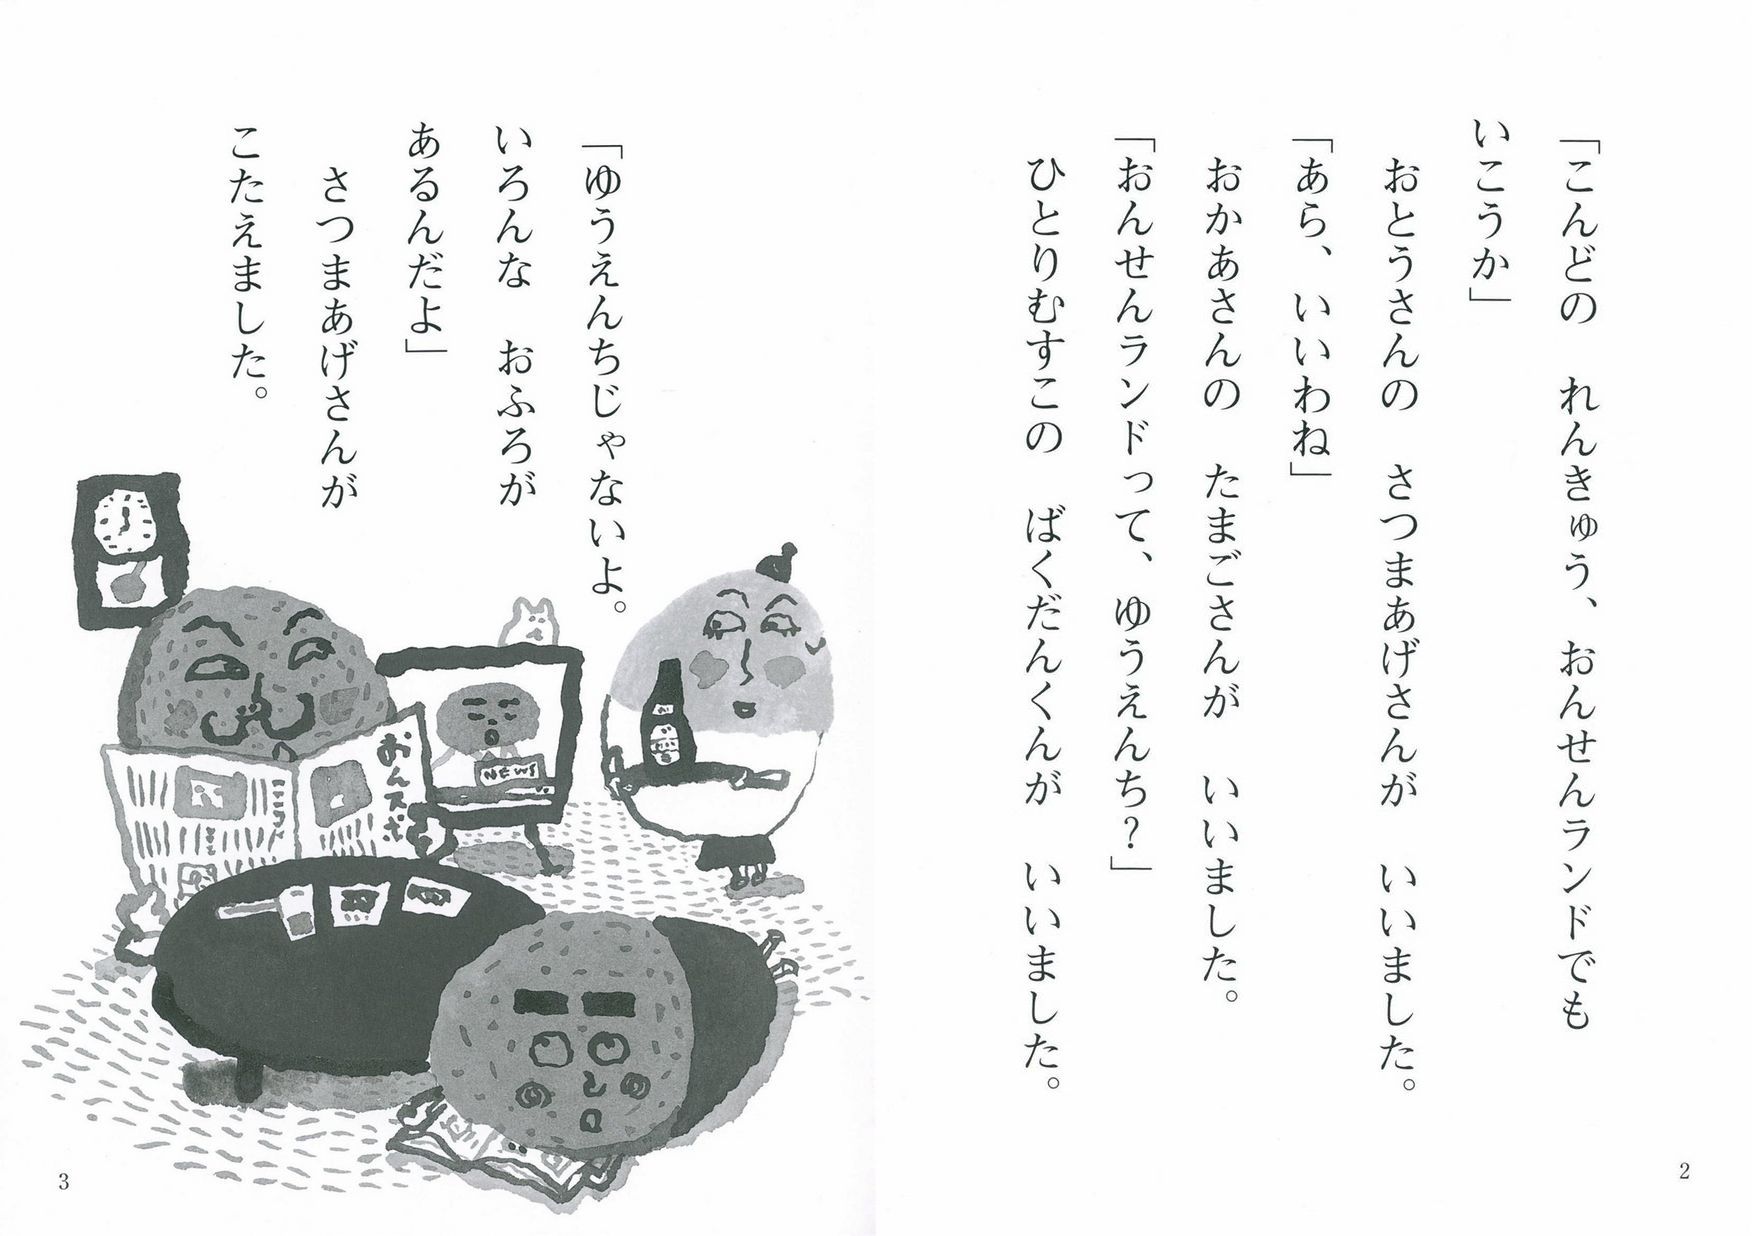 「こんどの　れんきゅう、おんせんランドでも
いこうか」
　おとうさんの　さつまあげさんが　いいました。
「あら、いいわね」
　おかあさんの　たまごさんが　いいました。
「おんせんランドって、ゆうえんち？」
　ひとりむすこの　ばくだんくんが　いいました。
2
「ゆうえんちじゃないよ。
いろんな　おふろが
あるんだよ」
　さつまあげさんが
こたえました。
おんスポ
NEWS
3